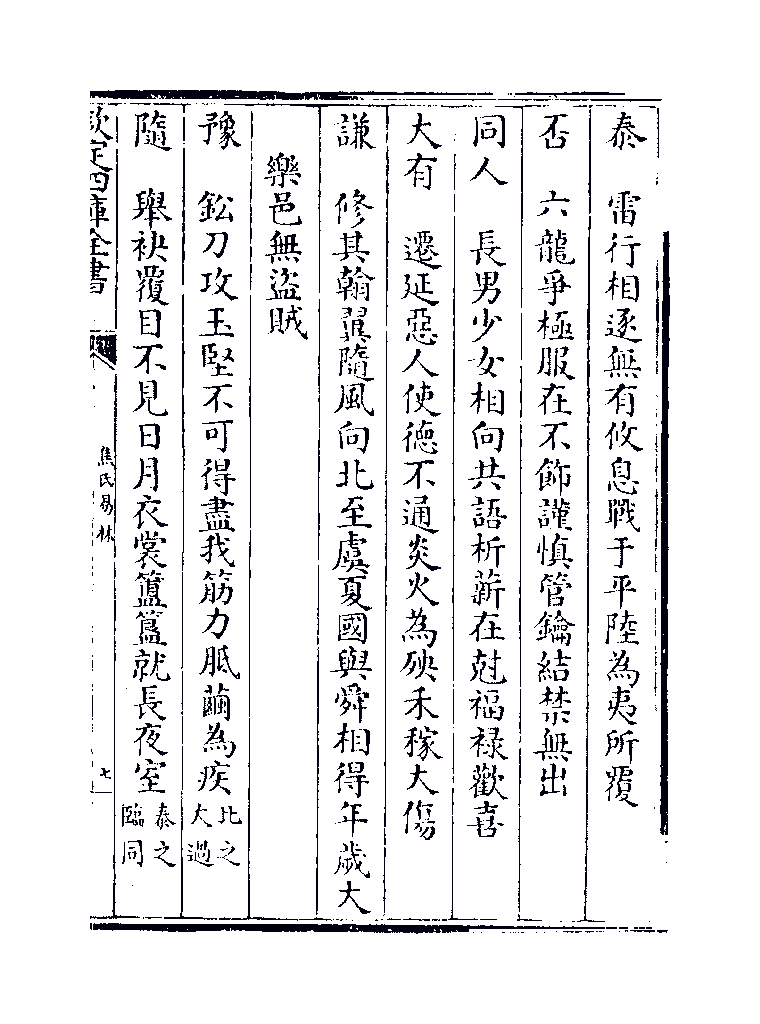 泰　雷行相逐無有攸息戰于平陸為夷所覆
否　六龍爭極服在不飾謹慎管鑰結禁無出
同人　長男少女相向共語析薪在尅福祿歡喜
大有　遷延惡人使德不通炎火為殃禾稼大傷
謙　修其翰翼隨風向北至虞夏國與舜相得年歲大
樂邑無盜賊
豫　鈆刀攻玉堅不可得盡我筋力胝繭為疾比之
大過
隨　舉袂覆目不見日月衣裳簠簋就長夜室泰之
臨同
欽定四庫全書
焦氏易林
七